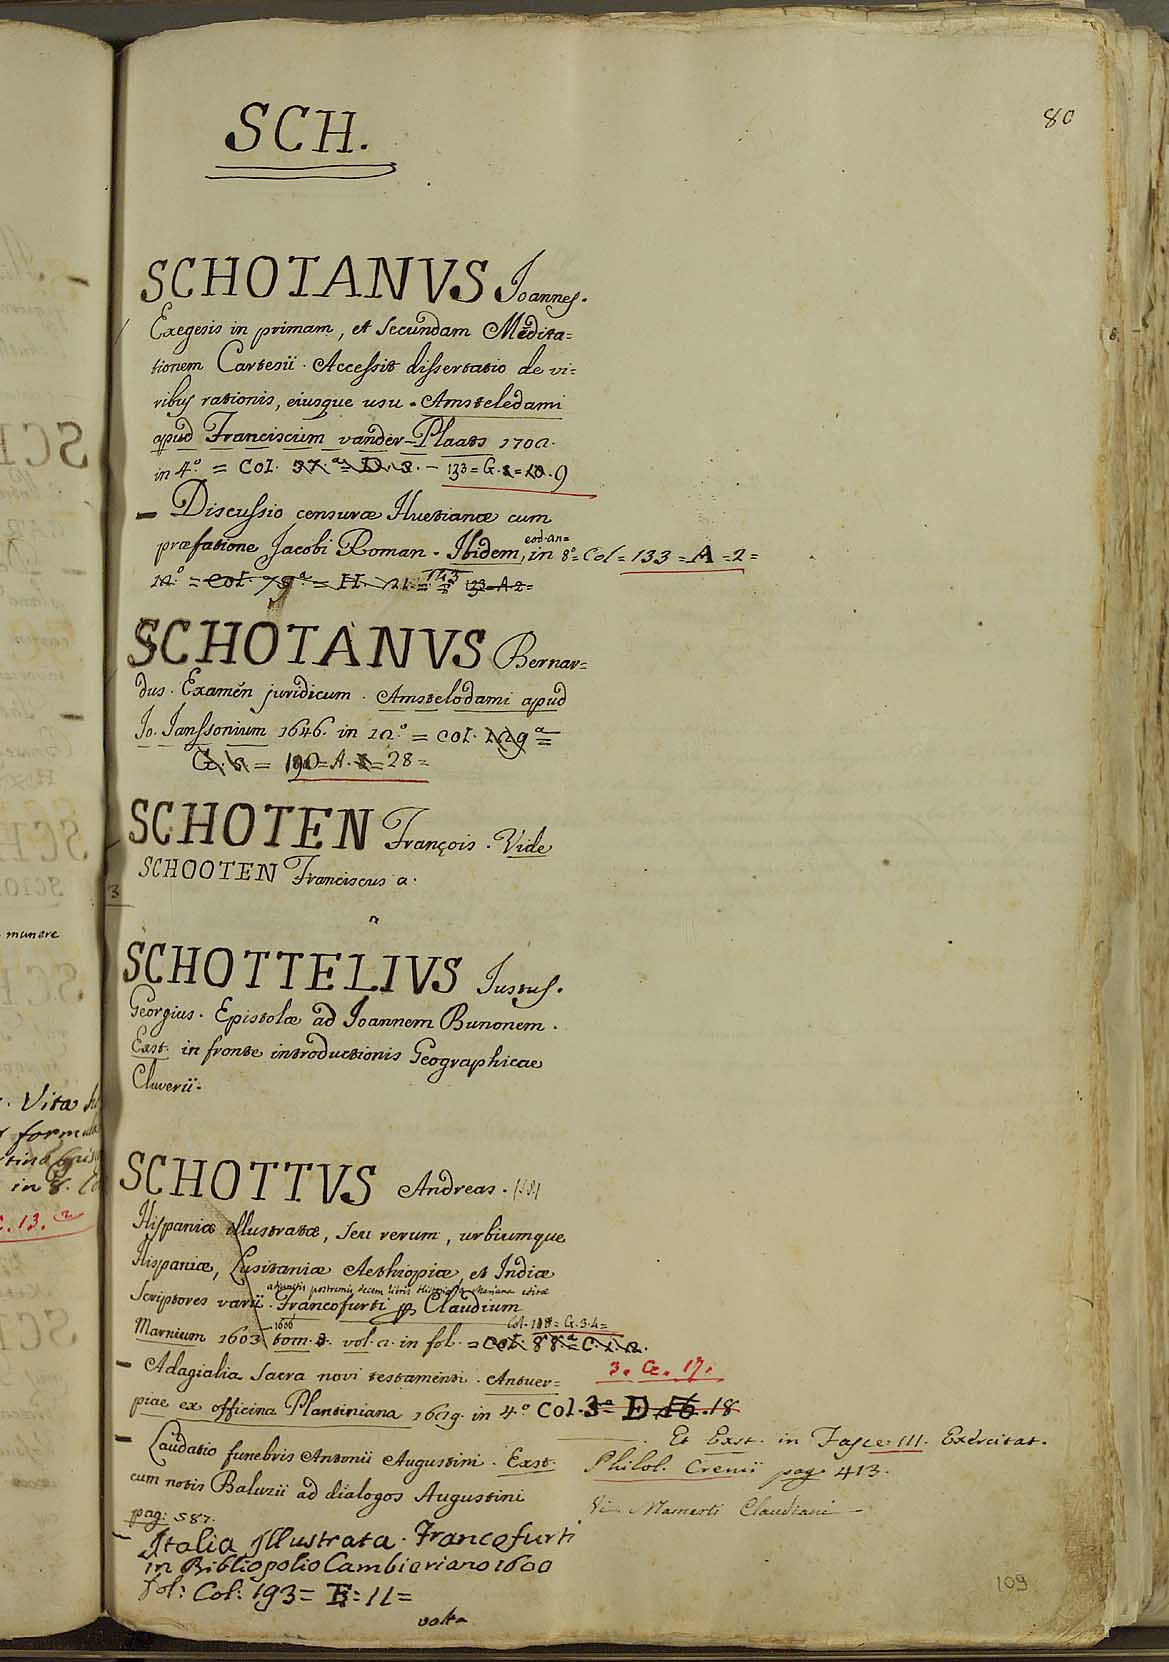 80
SCH.
SCHOTANVS Joannes.
Exegesis in primam, et secundam Medita=
tionem Cartesii. Accessit dissertatio de vi=
ribus rationis, eiusque usu. Amsteledami
apud Franciscum vander-Plaats 1702.
in 4.º = Col. 37.ª = D. 3. - 133 = G. 9
— Discussio censuræ Huetianæ cum
præfatione Jacobi Roman. Ibidem, eod. an= in 8º = Col = 133 = A = 2 =
12.º = Col. 79ª = H. 133 = A 2 =
SCHOTANVS Bernar=
dus. Examen juridicum. Amstelodami apud
Jo. Janssonium 1646. in 12.º = Col. 129ª =
G. = 190 = A. = 28 =
SCHOTEN François. Vide
SCHOOTEN Franciscus a.
SCHOTTELIVS Justus.
Georgius. Epistolæ ad Joannem Bunonem.
Exst. in fronte introductionis Geographicae
Cluverii.
SCHOTTVS Andreas.
Hispaniæ illustratæ, seu rerum, urbiumque
Hispaniæ, Lusitaniæ Aethiopiæ, et Indiæ
adjunctis postremis decem libris Historiæ Mariana
Scriptores varii. Francofurti ap Claudium
Marnium 1603. 1606 tom. 3. vol. 2. in fol. = Col. 88ª = C. 1. 2.
Col. 118 = G. 3. 4 =
— Adagialia sacra novi testamenti. Antuer=
3. C. 17.
piae ex officina Plantiniana 1629. in 4.º Col. 3ª = D 16. 18
— Laudatio funebris Antonii Augustini. Exst.
cum notis Baluzii ad dialogos Augustini
pag: 587.
Et Exst. in Fasce III. Exercitat.
Philol. Crenii pag 413.
Vi Mamerti Claudiani —
— Italia Illustrata. Francofurti
in Bibliopolio Cambieriano 1600
fol: Col: 193 = E = 11 =
volt=
109
munere
Vita
in 8.
13. 2